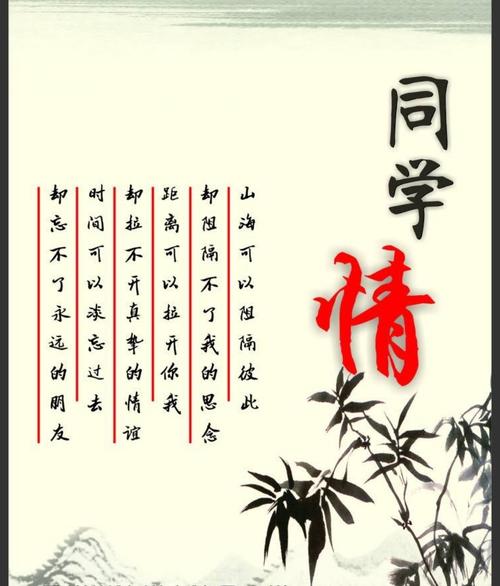 同学情
山海可以阻隔彼此
却阻隔不了我的思念
距离可以拉开你我
却拉不开真挚的情谊
时间可以淡忘过去
却忘不了永远的朋友